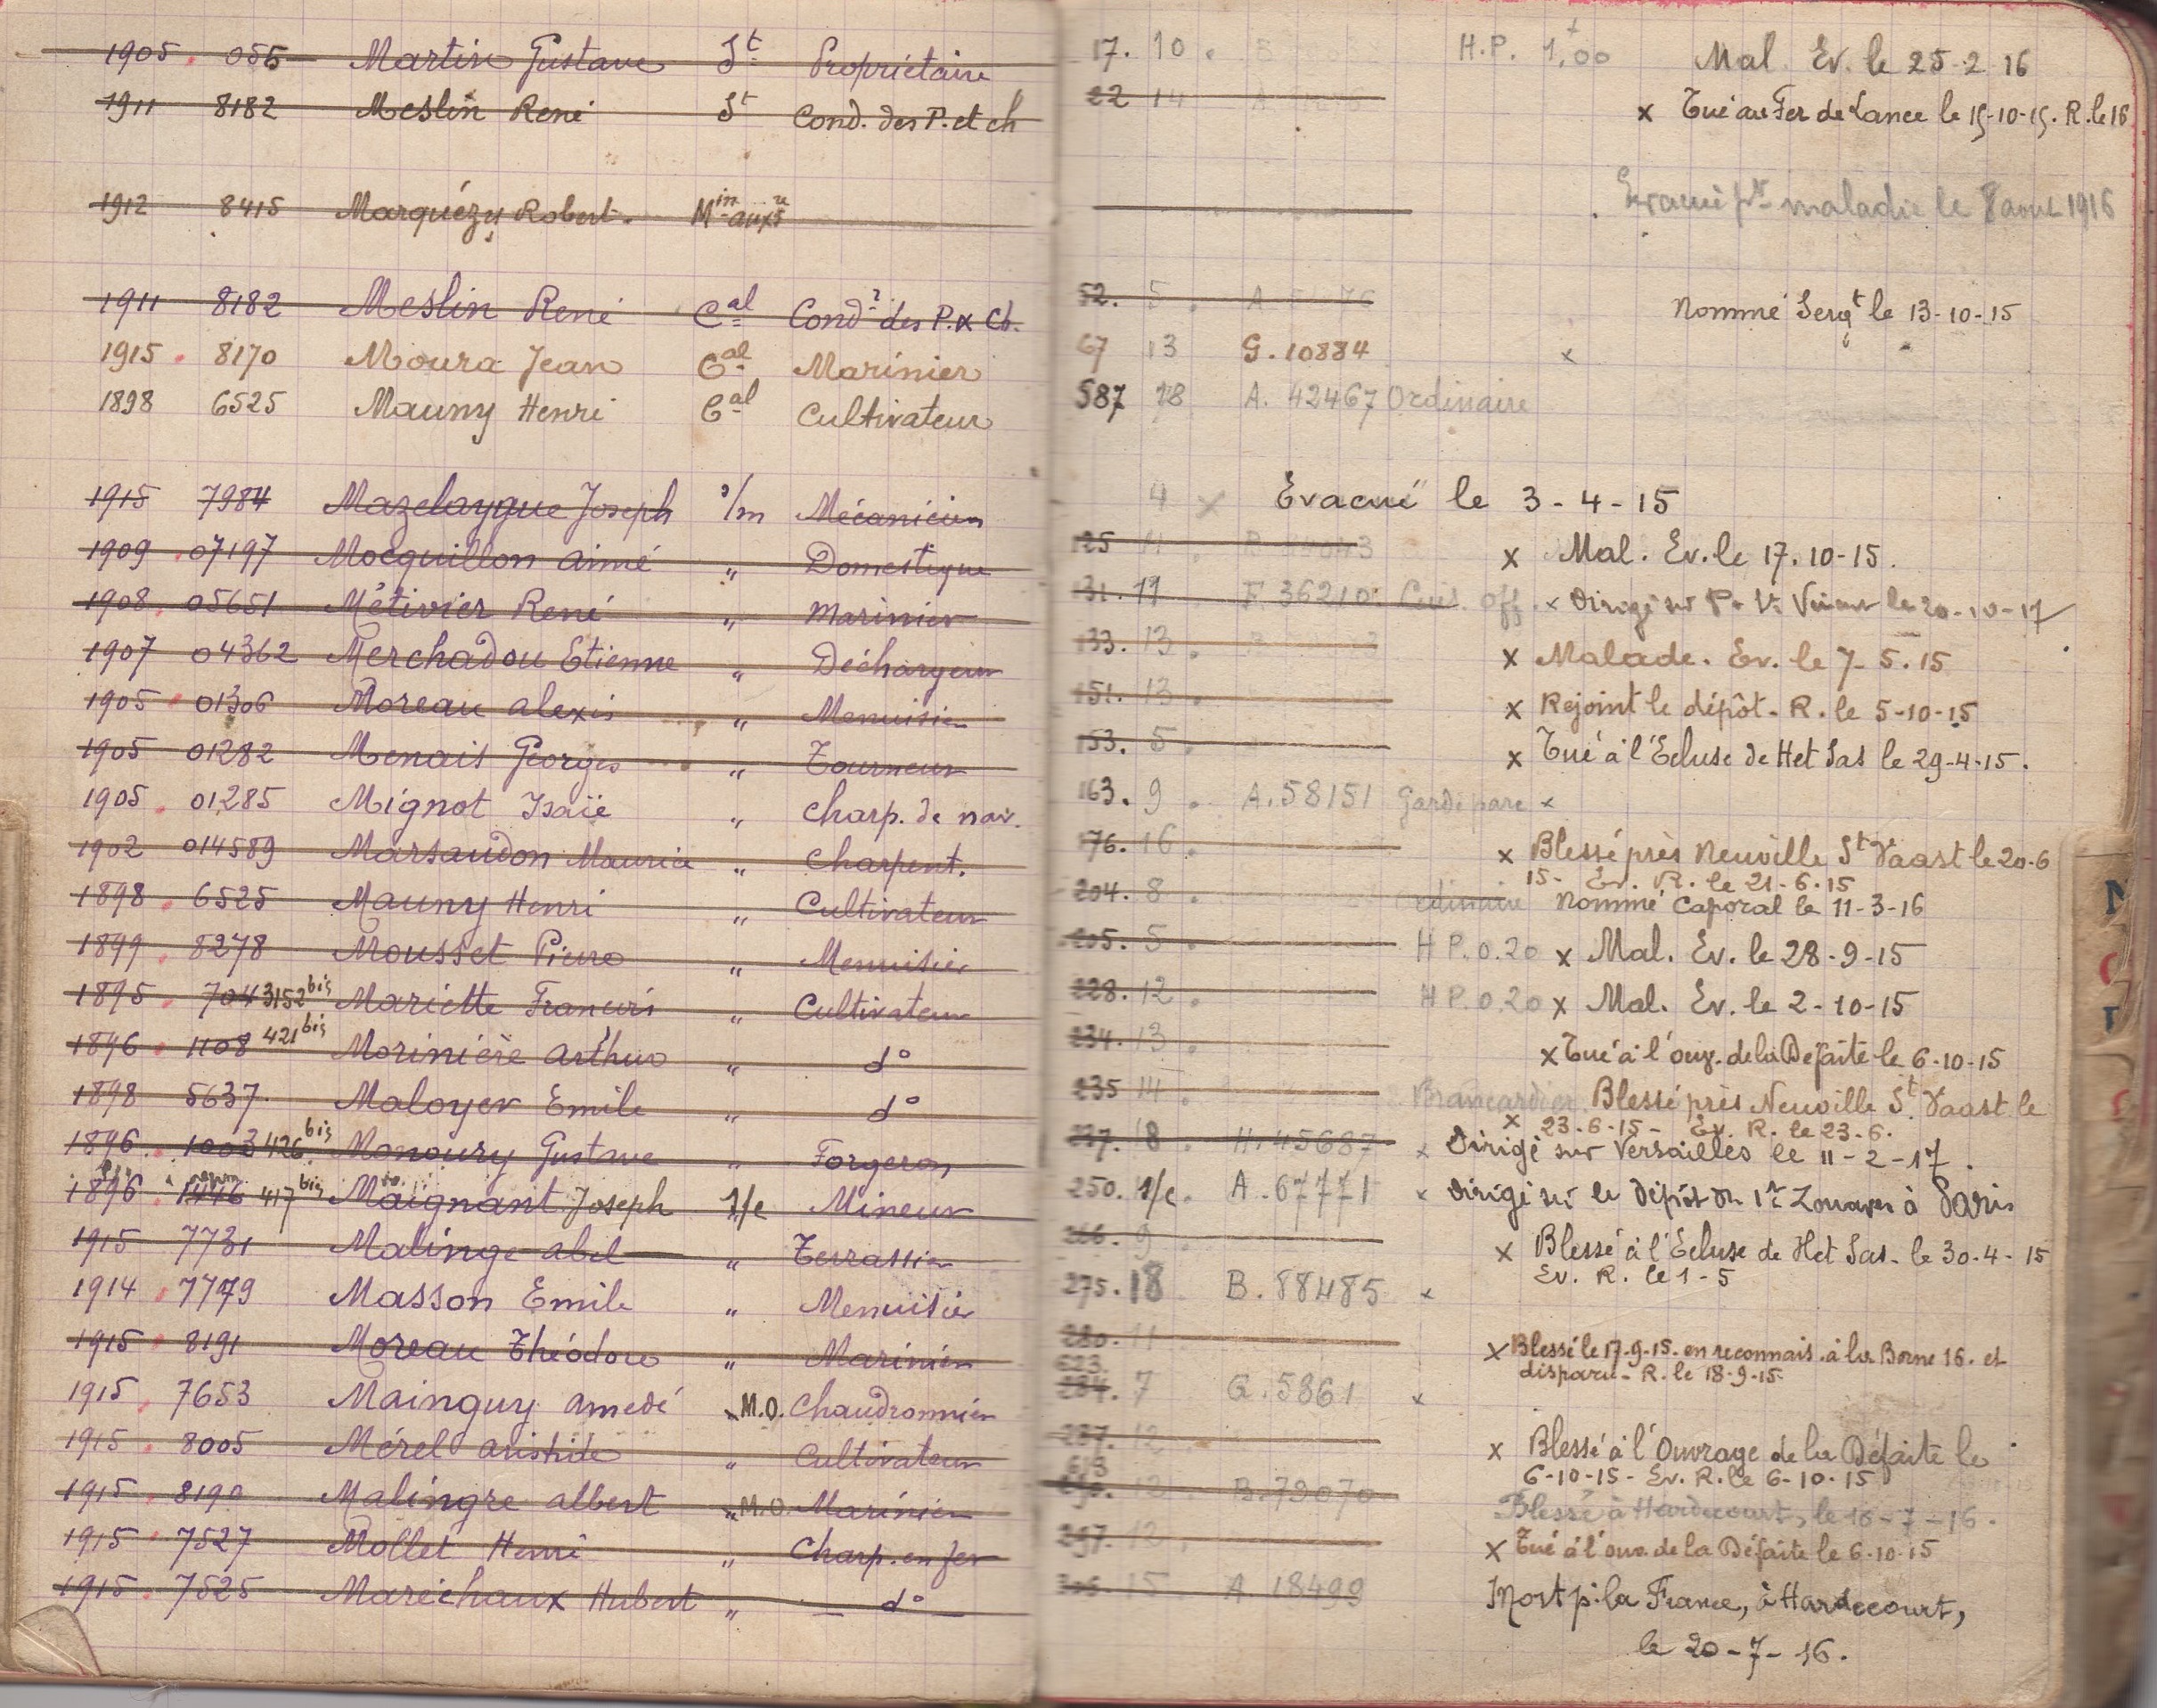 1905 . 055 Martin Gustave St Propriétaire 17. 10 . H.P. 1,00 Mal. Ev. le 25-2 16
1911 8182 Meslin René St Cond. des P. et ch 22 14 x Tué au Fer de Lance le 15-10-15. R. le 16
1912 8415 Marquézy Robert. Min auxre Evacué pr maladie le 8 aout 1916
1911 8182 Meslin René Cal Condr des P. & Ch. 52. 5 . A Nommé Sergt le 13-10-15
1915 . 8170 Moura Jean Cal Marinier 67 13 G. 10884 x
1898 6525 Mauny Henri Cal Cultivateur 587 18 A. 42467 Ordinaire
1915 7984 Mazelaygue Joseph s/m Mécanicien 4 x Evacué le 3-4-15
1909 . 07197 Mocquillon Aimé " Domestique 125 11 . x Mal. Ev. le 17.10-15.
1908 . 05651 Métivier René " Marinier 131. 11 F 36210. Cuis. off. x Dirigé sur le 20-10-17
1907 04362 Merchadou Etienne " Déchargeur 133. 13 . x Malade. Ev. le 7-5.15
1905 . 01306 Moreau Alexis " Menuisier 151. 13 . x Rejoint le dépôt. R. le 5-10-15
1905 01282 Menait Georges " Tourneur 153. 5 . x Tué à l'Ecluse de Het Sas le 29-4-15.
1905 . 01285 Mignot Isaïe " Charp. de nav. 163. 9 . A. 58151 Garde parc x
1902 014589 Marsaudon Maurice " Charpent. 176. 16 . x Blessé près Neuville St Vaast le 20-6
15- Ev. R. le 21-6-15
1898 . 6525 Mauny Henri " Cultivateur 204. 8 . Nommé Caporal le 11-3-16
1899 . 8278 Mousset Pierre " Menuisier 205. 5 . H P. 0.20 x Mal. Ev. le 28-9-15
1895 . 7043152 bis Mariette Francis " Cultivateur 228. 12 . H P. 0.20 x Mal. Ev. le 2-10-15
1896 . 1108 421 bis Morinière Arthur " d° 234. 13 . x Tué à l'ouv. de la Défaite le 6-10-15
1898 5637. Maloyer Emile " d° 235 14 . Brancardier. Blessé près Neuville St. Vaast le
x 23-6-15- Ev. R. le 23-6.
1896 . 1003 426 bis Monoury Gustave " Forgeron 237. 18 . H. 45687 x Dirigé sur Versailles le 11-2-17.
1896 . 1446 417 bis Maignant Joseph 1/c Mineur 250. 1/c. A. 67771 x Dirigé sur le dépôt du 1r Zouaves à Paris
1915 7731 Malinge Abel " Terrassier 266. 9 . x Blessé à l'Ecluse de Het Sas. le 30-4-15
Ev. R. le 1-5
1914 . 7779 Masson Emile " Menuisier 275. 18 B. 88485 x
1915 . 8191 Moreau Théodore " Marinier 280. 11 x Blessé le 17-9-15. en reconnais. à la Borne 16. et
disparu- R. le 18-9-15-
623
1915 . 7653 Mainguy Amedé " M.O. Chaudronnier 284. 7 G. 5861 x
1915 . 8005 Mérel Aristide " Cultivateur 287. 12 x Blessé à l'Ouvrage de la Défaite le
6-10-15- Ev. R. le 6-10-15
619
1915 . 8190 Malingre Albert " M.O. Marinier 12 B. 79070 Blessé à Hardecourt, le 16-7-16.
1915 . 7527 Mollet Henri " Charp. en fer 297. 12 . x Tué à l'ouv. de la Défaite le 6-10-15
1915 . 7525 Maréchaux Hubert " d° 306. 15 A. 18499 Mort p. la France, à Hardecourt,
le 20-7-16.